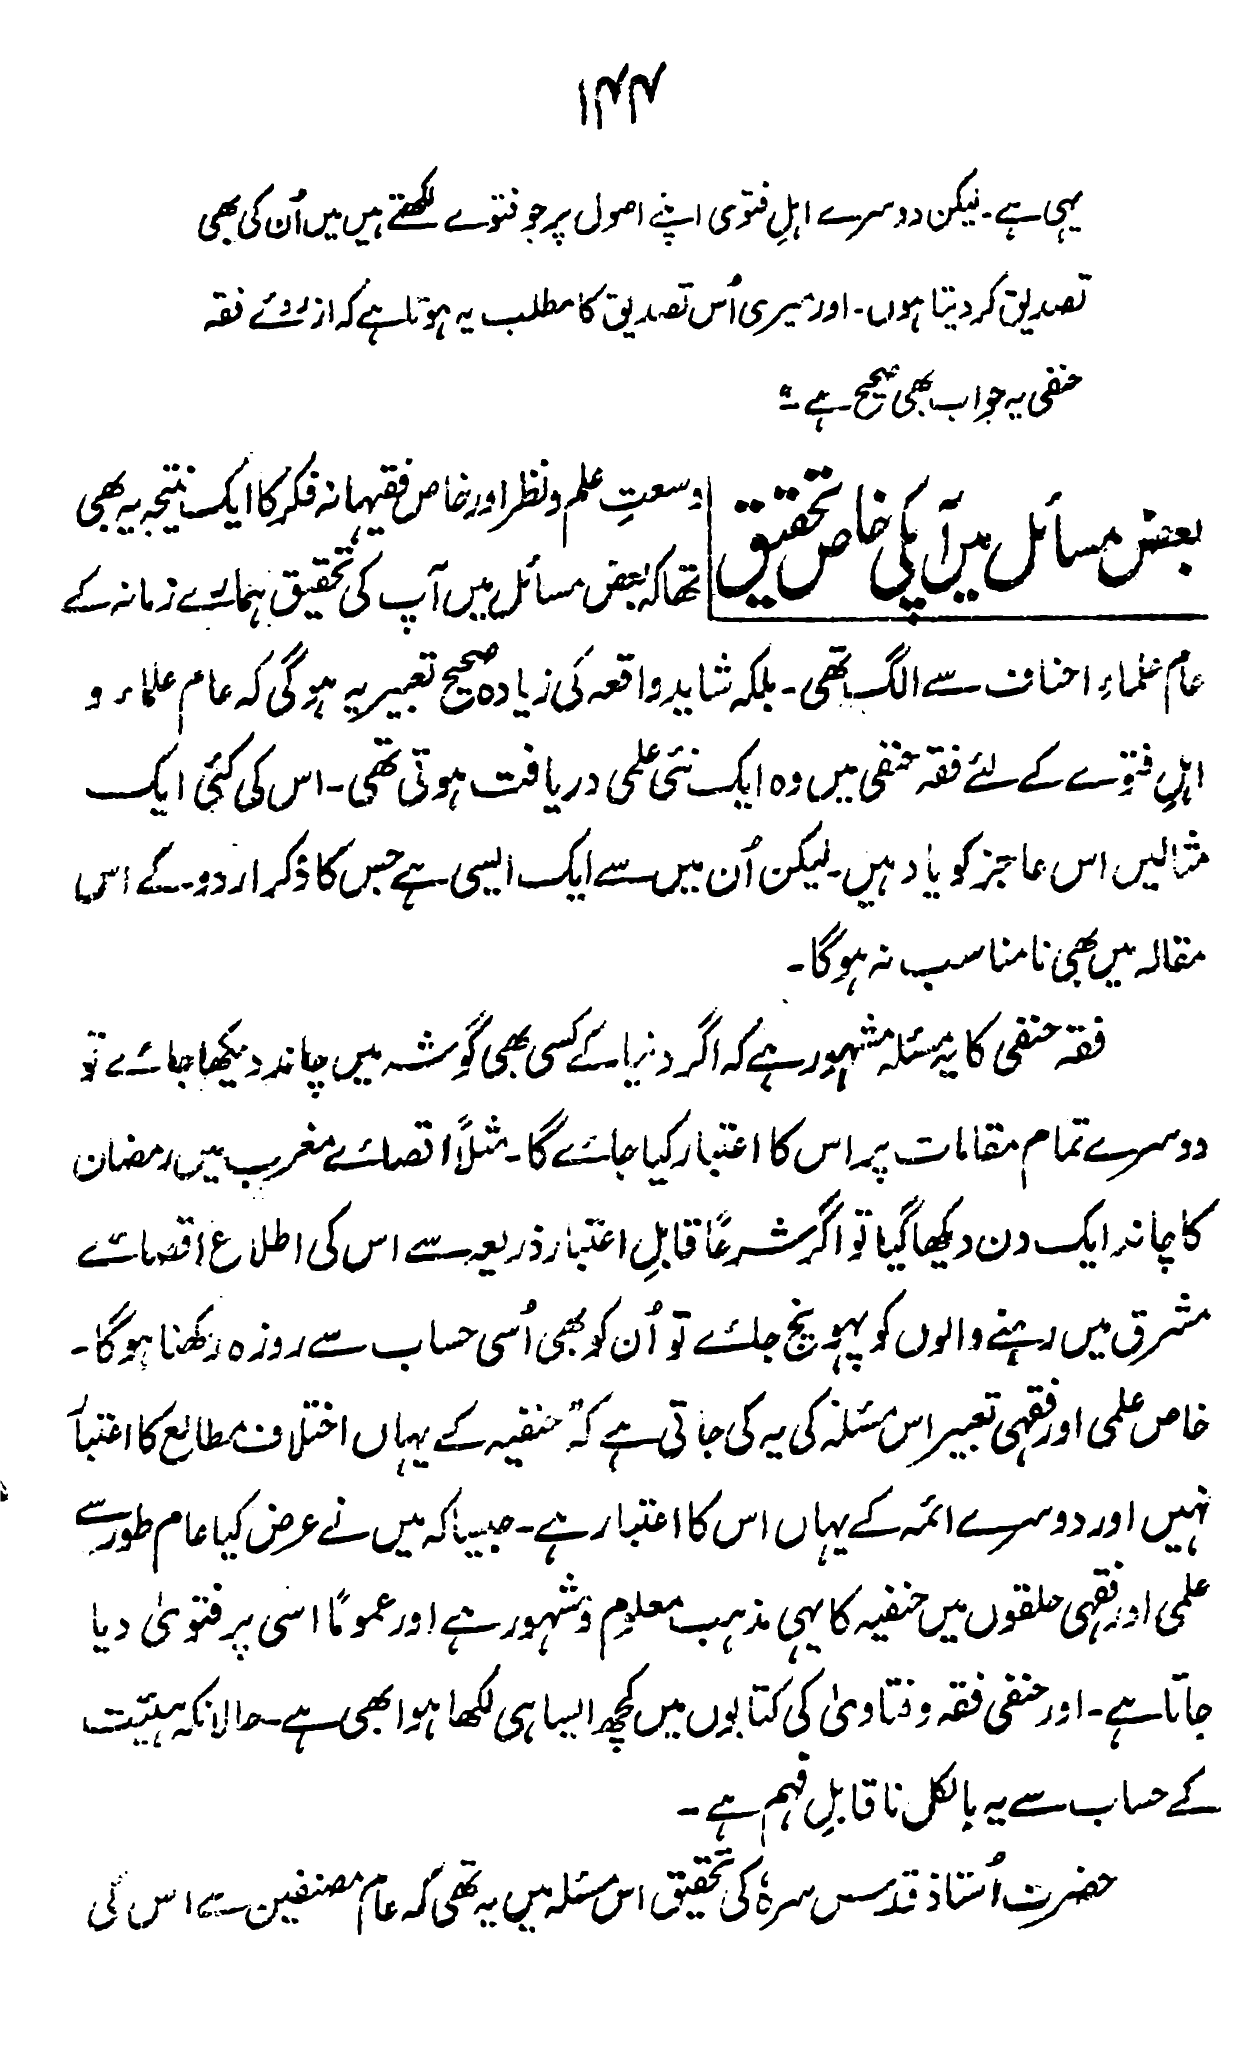 ۱۴۴
یہی ہے۔ لیکن دوسرے اہلِ فتوی اپنے اصول پر جو فتوے لکھتے ہیں میں اُن کی بھی
تصدیق کر دیتا ہوں۔ اور میری اُس تصدیق کا مطلب یہ ہوتا ہے کہ از روئے فقہ
حنفی یہ جواب بھی صحیح ہے۔"
بعض مسائل میں آپکی خاص تحقیق
وسعتِ علم و نظر اور خاص فقیہانہ فکر کا ایک نتیجہ یہ بھی
تھا کہ بعض مسائل میں آپ کی تحقیق ہمارے زمانہ کے
عام علماءِ احناف سے الگ تھی۔ بلکہ شاید واقعہ کی زیادہ صحیح تعبیر یہ ہوگی کہ عام علماء و
اہلِ فتوے کے لئے فقہ حنفی میں وہ ایک نئی علمی دریافت ہوتی تھی۔ اس کی کئی ایک
مثالیں اس عاجز کو یاد ہیں۔ لیکن اُن میں سے ایک ایسی ہے جس کا ذکر اردو کے اس
مقالہ میں بھی نامناسب نہ ہوگا۔
فقہ حنفی کا یہ مسئلہ مشہور ہے کہ اگر دنیا کے کسی بھی گوشہ میں چاند دیکھا جائے تو
دوسرے تمام مقامات پر اس کا اعتبار کیا جائے گا۔ مثلاً اقصائے مغرب میں رمضان
کا چاند ایک دن دیکھا گیا تو اگر شرعًا قابلِ اعتبار ذریعہ سے اس کی اطلاع اقصائے
مشرق میں رہنے والوں کو پہونچ جائے تو اُن کو بھی اُسی حساب سے روزہ رکھنا ہوگا۔
خاص علمی اور فقہی تعبیر اس مسئلہ کی یہ کی جاتی ہے کہ "حنفیہ کے یہاں اختلاف مطالع کا اعتبار
نہیں اور دوسرے ائمہ کے یہاں اس کا اعتبار ہے۔ جیسا کہ میں نے عرض کیا عام طور سے
علمی اور فقہی حلقوں میں حنفیہ کا یہی مذہب معلوم و مشہور ہے اور عمومًا اسی پر فتویٰ دیا
جاتا ہے۔ اور حنفی فقہ و فتاویٰ کی کتابوں میں کچھ ایسا ہی لکھا ہوا بھی ہے۔ حالانکہ ہیئیت
کے حساب سے یہ بالکل ناقابلِ فہم ہے۔
حضرت اُستاذ قدس سرہٗ کی تحقیق اس مسئلہ میں یہ تھی کہ عام مصنفین سے اس کی